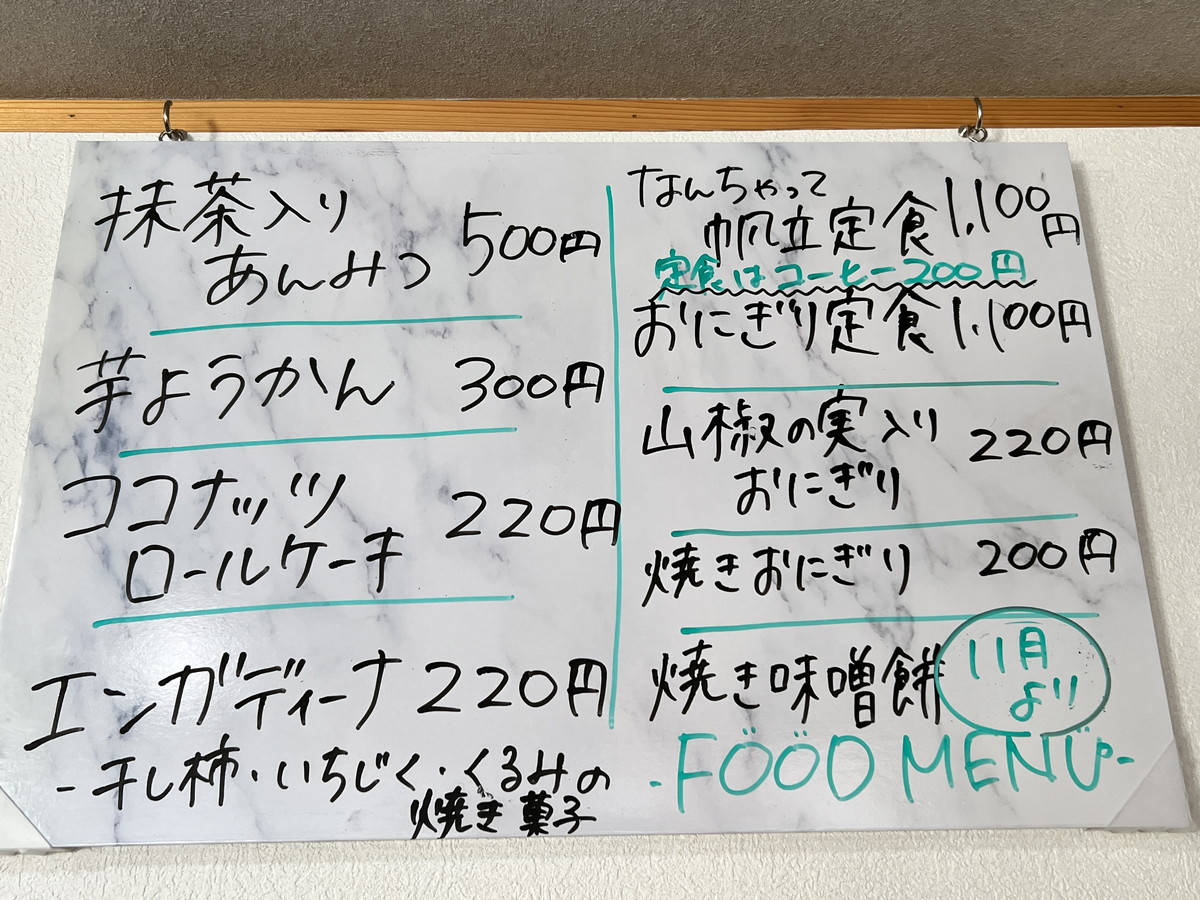 抹茶入り
あんみつ 500円
芋ようかん 300円
ココナッツ
ロールケーキ 220円
エンガディーナ 220円
-干し柿・いちじく・くるみの
焼き菓子
なんちゃって
帆立定食 1,100円
定食はコーヒー200円
おにぎり定食 1,100円
山椒の実入り 220円
おにぎり
焼きおにぎり 200円
焼き味噌餅 11月
より
-FOOD MENU-